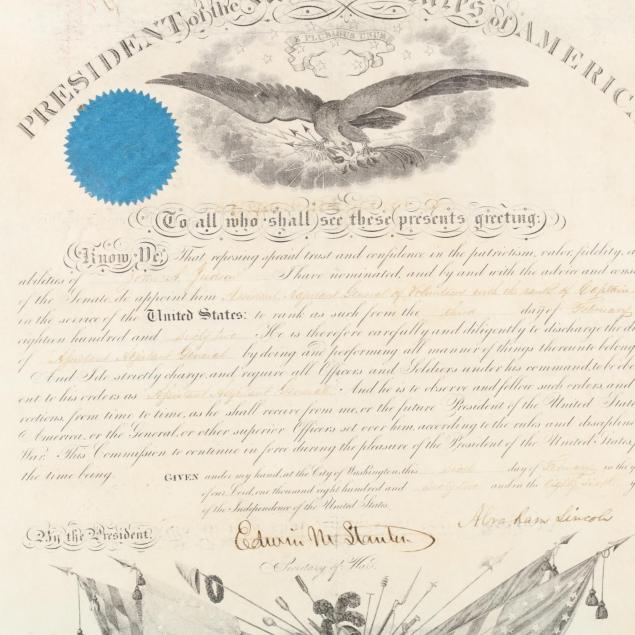 PRESIDENT of the States of AMERICA
E PLURIBUS UNUM
To all who shall see these presents greeting:
Know Ye, That reposing special trust and confidence in the patriotism, valor, fidelity, a
abilities of John A. Judson I have nominated, and by and with the advice and cons
of the Senate do appoint him Assistant Adjutant General of Volunteers with the rank of Captain
in the service of the United States: to rank as such from the third day of February
eighteen hundred and sixty two He is therefore carefully and diligently to discharge the du
of Assistant Adjutant General by doing and performing all manner of things thereunto belong
And I do strictly charge, and require all Officers and Soldiers under his command, to be obe
ent to his orders as Assistant Adjutant General And he is to observe and follow such orders and
rections, from time to time, as he shall receive from me, or the future President of the United State
America, or the General, or other superior Officers set over him, according to the rules and discipline
War. This Commission to continue in force during the pleasure of the President of the United States,
the time being.
GIVEN under my hand, at the City of Washington, this sixth day of February in the y
of our Lord, one thousand eight hundred and sixty two and in the Eighty Sixth y
of the Independence of the United States.
Abraham Lincoln
By the President.
Edwin M Stanton
Secretary of War.